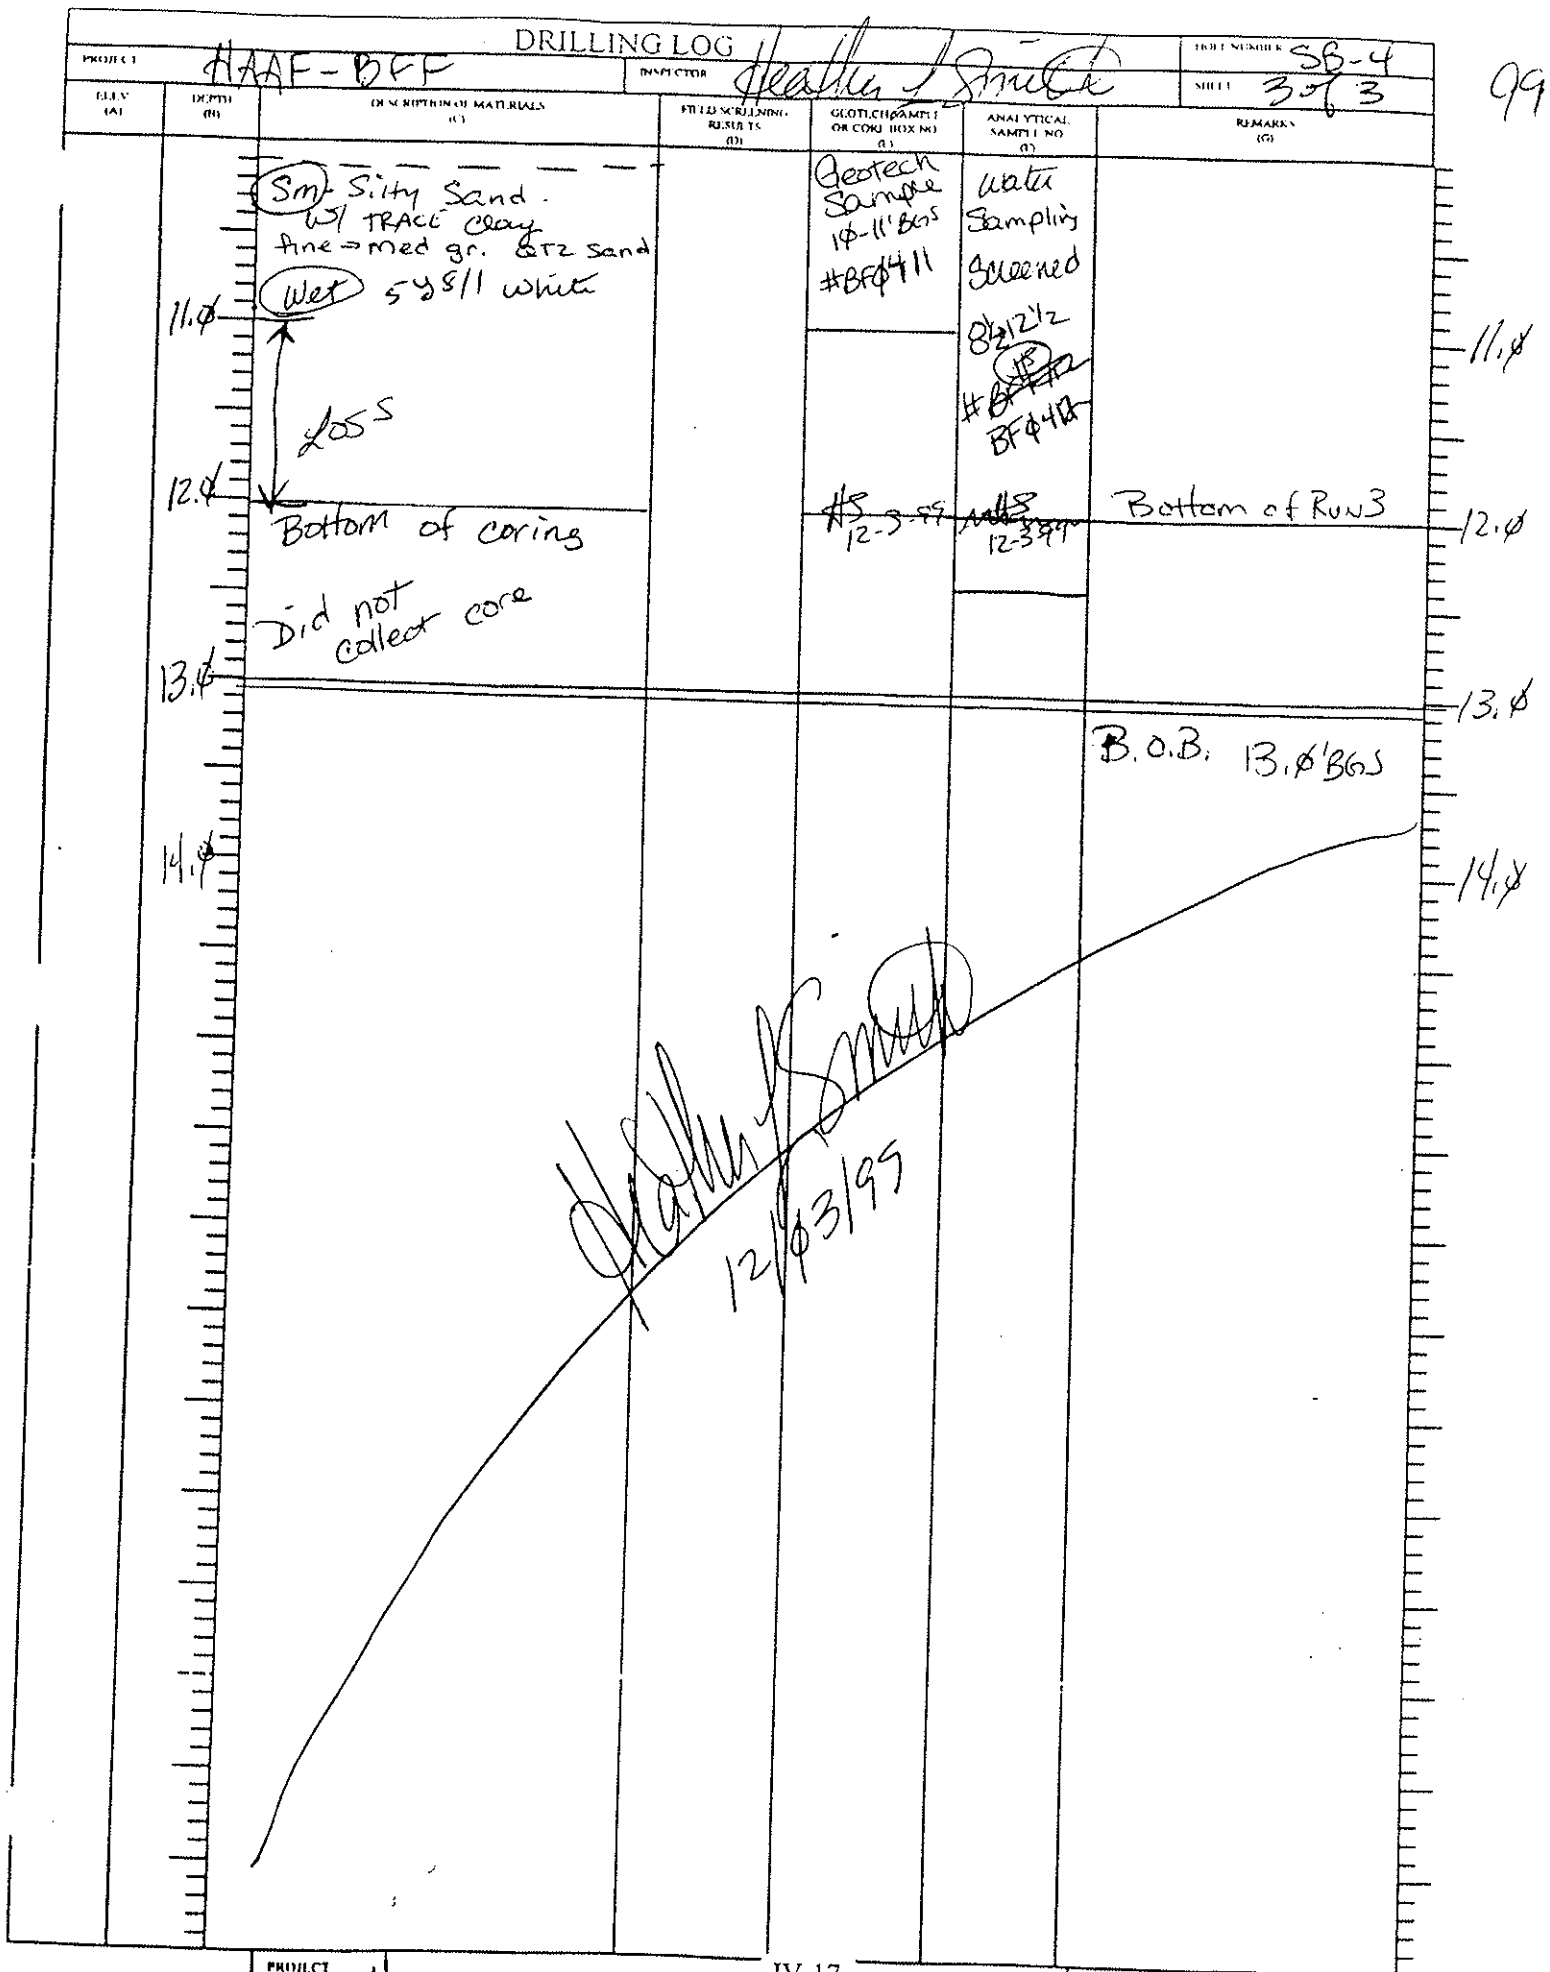 DRILLING LOG
PROJECT HAAF-BFF
INSPECTOR Heather L Smith
HOLE NUMBER SB-4
SHEET 3 of 3
99
ELEV (A)
DEPTH (B)
DESCRIPTION OF MATERIALS (C)
FIELD SCREENING RESULTS (D)
GEOTECH SAMPLE OR CORE BOX NO (E)
ANALYTICAL SAMPLE NO (F)
REMARKS (G)
Sm - Silty Sand.
W/ TRACE Clay
fine → med gr. QTZ Sand
Wet 5y8/1 White
Geotech
Sample
1Ø-11' BGS
#BFØ411
Water
Sampling
Screened
8½ 12½
HS
BFØ412
11.Ø
11.Ø
LOSS
12.Ø
Bottom of coring
HS
12-3-99
HS
12-3-99
Bottom of Run 3
12.Ø
Did not
collect core
13.Ø
13.Ø
B.O.B. 13.Ø' BGS
14.Ø
14.Ø
Heather L Smith
12/Ø3/99
PROJECT
IV-17